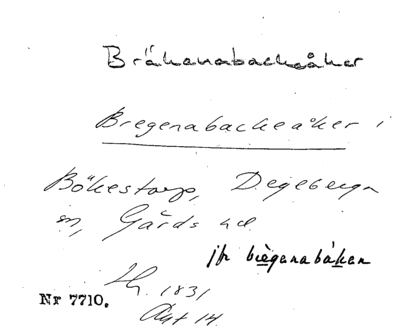 Bräkanabackeåker
Bregenabackeåker i
Bökestorp, Degeberga
sn, Gärds hd.
jfr brègenabákan
Lh. 1831
Akt 14.
Nr 7710.